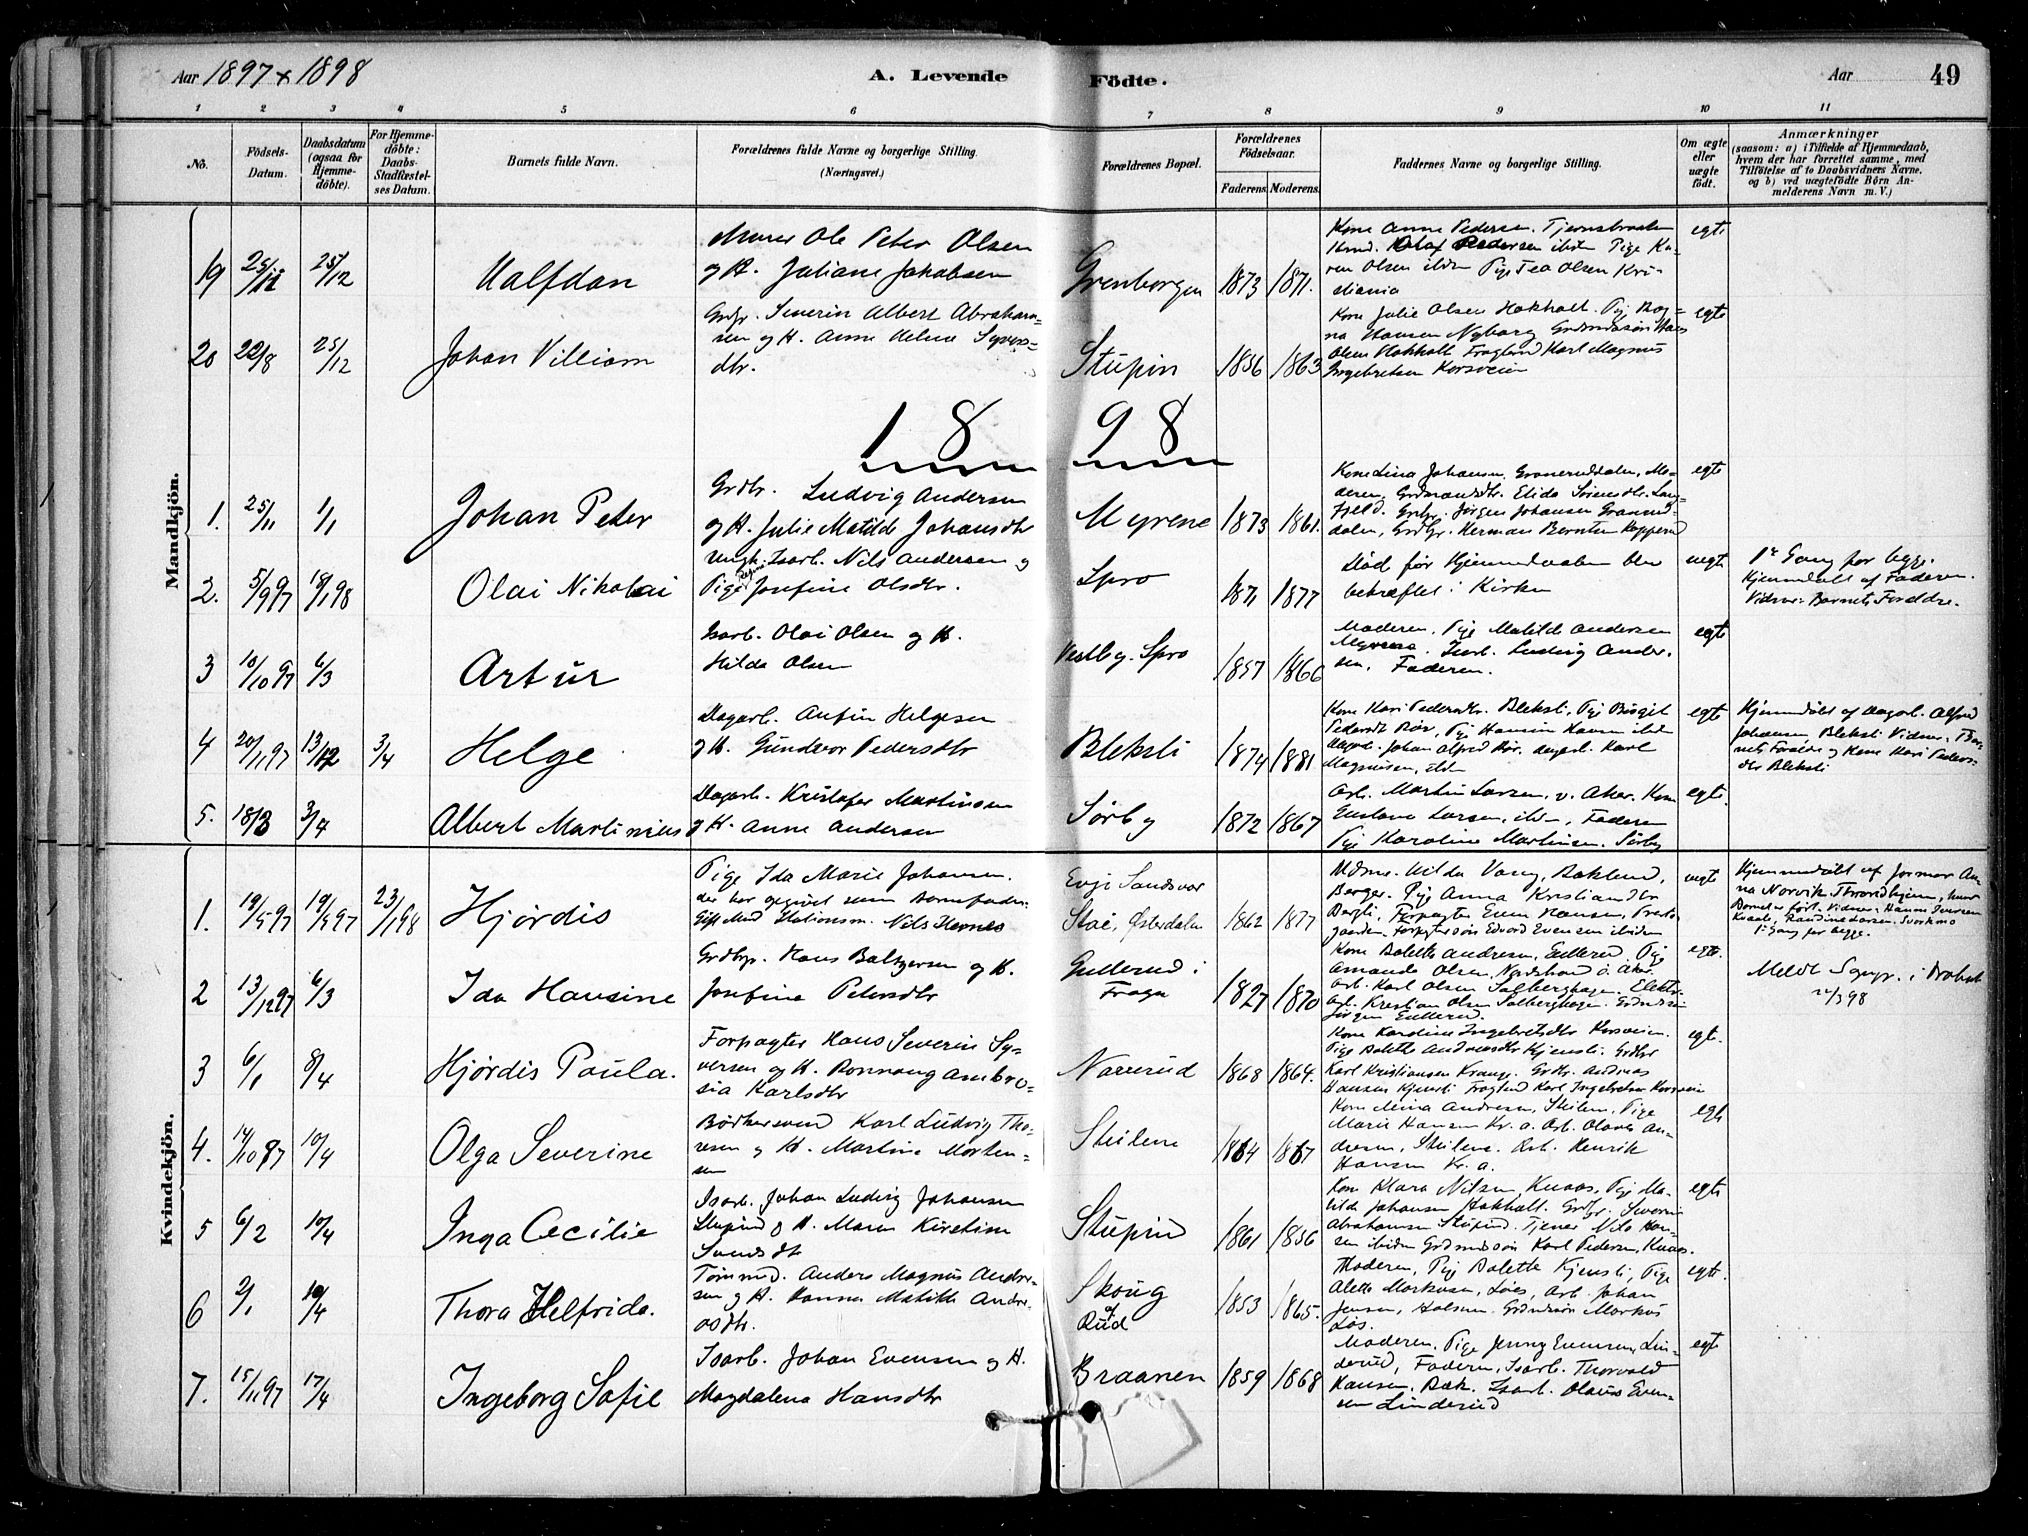 Aar 1897 & 1898
A. Levende
Födte.
Aar
49
1 2 3 4 5 6 7 8 9 10 11
No.
Födsels-
Datum.
Daabsdatum
(ogsaa for
Hjemme-
döbte).
For Hjemme-
döbte:
Daabs-
Stadfæstel-
ses Datum.
Barnets fulde Navn.
Forældrenes fulde Navne og borgerlige Stilling.
(Næringsvei.)
Forældrenes Bopæl.
Forældrenes
Födselsaar.
Faderens. Moderens.
Faddernes Navne og borgerlige Stilling.
Om ægte
eller
uægte
födt.
Anmærkninger
(saasom: a) i Tilfælde af Hjemmedaab,
hvem der har forrettet samme, med
Tilföielse af to Daabsvidners Navne,
og b) ved uægtefödte Börn An-
melderens Navn m. V.)
Mandkjön.
19 25/12 Halfdan
Murer Ole Peter Olsen
og H. Juliane Jakobsen
Grenborgen 1873 1871.
Kone Anne Pedersen.
Olaf Pedersen ibdm Pige Ka-
ren Olsen ibdm Pige Tea Olsen Kri-
stiania
egte
20 22/8 25/12 Johan Villiam
Grdbr. Severin Albert Abraham-
sen og H. Anne Helene Syvers-
dtr.
Stupin 1856 1863
Kone Julie Olsen Hakholt. Pige Rag-
na Hansen Nyborg Grdmdssön Hans
Olsen Hakholt Fragtmd Karl Magnus
Ingebretsen Korsveien
egte
1898
1. 25/11 1/1 Johan Peter
Grdbr. Ludvig Andersen
og H. Julie Matilde Johansdtr
Myrene 1873 1861.
Kone Lina Johansen, Graneruddalen, Mo-
deren, Grdmandsdtr. Elida
Jörgen Johansen
dalen, Grdbr. Herman Berntsen
egte
2. 5/9 97 18/1 98 Olai Nikolai
Ungk. Isarb. Nils Andersen og
Pige Regine Josefine Olsdtr.
Spro 1871 1877
Död før Hjemmedaaben blev
bekræftet i Kirken
uegte
1ste Gang for begge.
Hjemmedöbt af Faderen.
Vidner: Barnets Foreldre.
3 10/10 97 6/3 Artur
Isarb. Olai Olsen og H.
Hilda Olsen
Vestby. Spro 1857 1866
Moderen, Pige Matilde Andersen
Myrene. Isarb. Ludvig Ander-
sen, Faderen.
egte
4 20/1 97 13/12 3/4 Helge
Dagarb. Anfin Helgesen
og H. Gundvor Pedersdtr
Bleksli 1874 1881
Kone Kari Pedersdtr. Bleksli, Pige Birgit
Pedersdtr Rör, Pige Hansine Hansen ibdm
Dagarb. Johan Alfred Rör. Dagarb. Karl
Magnusen, ibdm
egte
Hjemmedöbt af Dagarb. Alfred
Johansen, Bleksli Vidner: Bar-
nets Foreldre og Kone Kari Peders-
dtr Bleksli
5. 18/3 3/4 Albert Martinius
Dagarb. Kristofer Martinsen
og H. Anne Andersen
Sörby 1872 1867
Arb. Martin Larsen, v. Aker. Kone
Gustava Larsen, ibdm, Faderen
Pige Karoline Martinsen. Sörby
egte.
Kvindekjön.
1. 19/5 97 19/5 97 23/1 98 Hjördis
Pige Ida Marie Johansen.
der har opgivet som Barnefader
Gift Mand Stationsm. Nils Hernes
Evje Sandsvær
Stai, Østerdalen 1862 1877
Berger. Pige Anna Kristiansdtr
Forpagter Even Hansen, Preste-
gaarden. Forpagtersön Edvard Evensen ibidem
uegte
Hjemmedöbt af Jormor An-
na Norvik, Throndhjem, hvor
Barnet er födt. Vidner: Hanna Iversen
1ste Gang for begge.
2 13/12 97 6/3 Ida Hansine
Grdbrg. Hans Baltzersen og H.
Josefine Petersdtr
Gullerud i
Frogn 1827 1870
Kone Bolette Andresen, Gullerud. Pige
Amanda Olsen, Nordstrand v. Aker.
Arb. Karl Olsen Solberghagen. Elektr.
Arb. Kristian Olsen Solberghagen. Grdmdssön
Jörgen Gullerud.
egte.
Meldt Sognepr. i Drøbak
22/3 98
3 6/1 8/4 Hjördis Paula.
Forpagter Hans Severin Sy-
versen og H. Ronnaug Ambro-
sia Karlsdtr
Narerud 1868 1864.
Kone Karoline Ingebretsdtr Korsveien.
Pige Bolette Andreasdtr Kjensli. Grdbr
Karl Kristiansen Krange. Grdbr. Andreas
Hansen Kjensli Fragtmd Karl Ingebretsen Korsveien
egte.
4. 14/10 97 10/4 Olga Severine
Bödkersvend Karl Ludvig Tho-
resen og H. Martine Morten-
sen
Steilene 1864 1867
Kone Mina Andresen, Steilene, Pige
Marie Hansen Kr. a. Arb. Olaves An-
dresen, Steilene. Arb. Henrik
Hansen Kr. a.
egte
5 6/2 10/4 Inga Cecilie
Isarb. Johan Ludvig Johansen
Stupind og H. Maren Kirstine
Svendsdtr
Stupind 1861 1856
Kone Klara Nilsen, Knaas, Pige Ma-
tilde Johansen Hakholt. Grdbr. Severin
Abrahamsen Stupind. Tjener Nils Han-
sen ibidem Grdmdssön Karl Pedersen, Knaas.
egte
6 2/1 10/4 Thora Helfrida.
Tömmermd. Anders Magnus Andre-
sen og H. Hanna Matilde Andre-
asdtr.
Skoug
af
Rud 1853 1865.
Moderen, Pige Bolette Kjensli, Pige
Alette Markusen, Løes, Arb. Johan
Jensen, Holsmen. Grdmdssön Markus
Løs.
egte.
7. 15/11 97 17/4 Ingeborg Sofie
Isarb. Johan Evensen og H.
Magdalena Hansdtr
Braanen 1859 1868
Moderen, Pige Jenny Evensen, Lin-
derud, Faderen, Isarb. Thorvald
Hansen. Bæk. Isarb. Olaus Even-
sen Linderud
egte